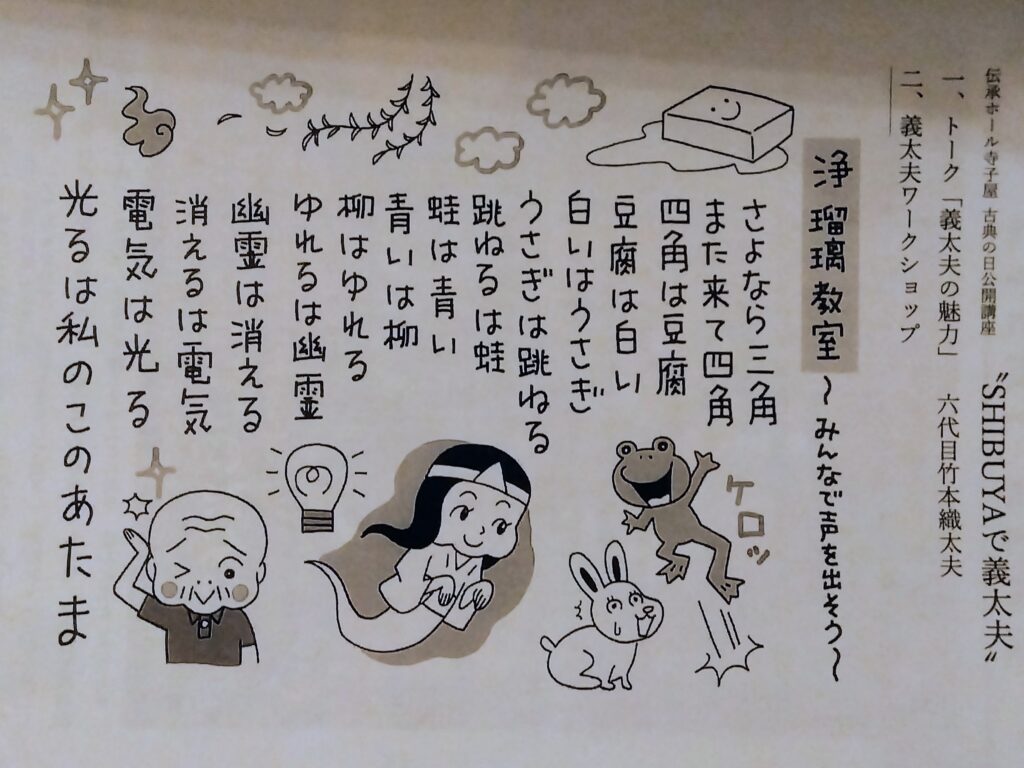 伝承ホール寺子屋 古典の日公開講座 〝SHIBUYAで義太夫〟
一、トーク「義太夫の魅力」 六代目竹本織太夫
二、義太夫ワークショップ
浄瑠璃教室 〜みんなで声を出そう〜
さよなら三角
また来て四角
四角は豆腐
豆腐は白い
白いはうさぎ
うさぎは跳ねる
跳ねるは蛙
蛙は青い
青いは柳
柳はゆれる
ゆれるは幽霊
幽霊は消える
消えるは電気
電気は光る
光るは私のこのあたま
ケロッ